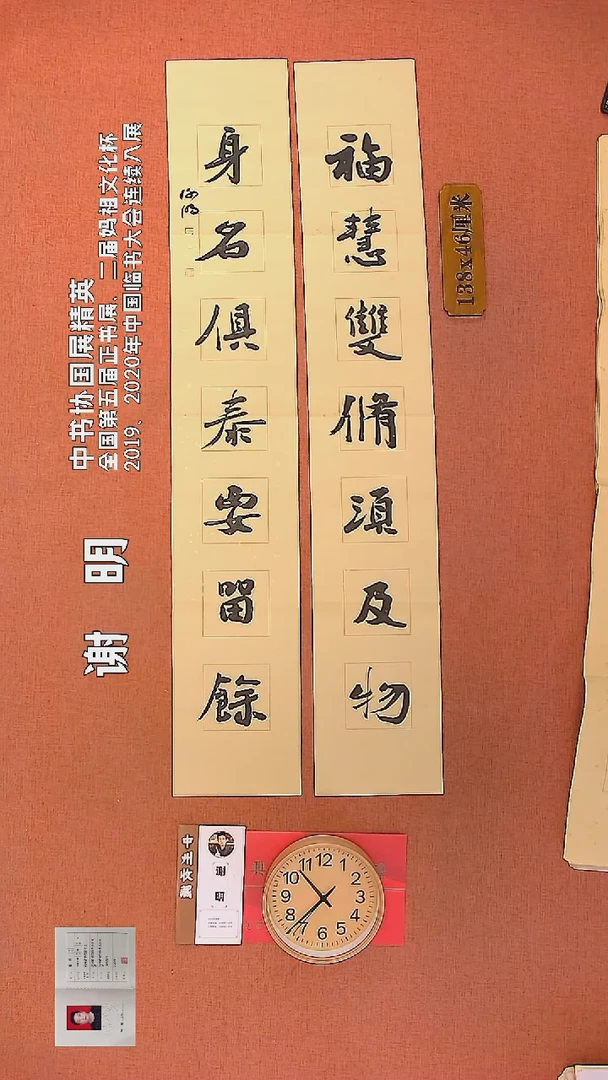 福慧雙脩須及物
身名俱泰安留餘
谢明
138x46厘米
中书协国展精英
全国第五届正书展、二届妈祖文化杯
2019、2020年中国临书大会连续入展
谢 明
谢 明
12
1
2
3
4
5
6
7
8
9
10
11